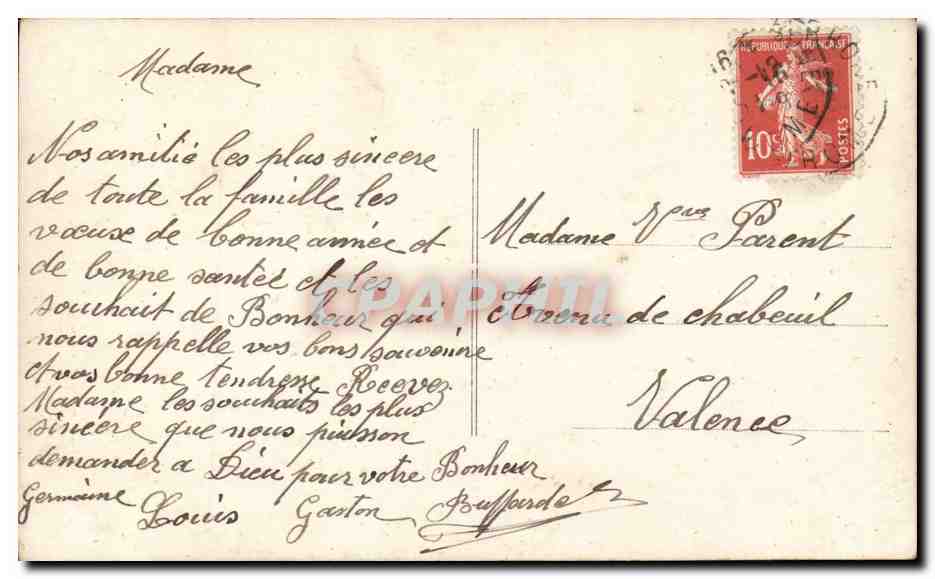 Madame
Nos amitié les plus sincere
de toute la famille les
vœux de bonne année et
de bonne santée et les
souhait de Bonheur qui
nous rappelle vos bons souvenire
et vos bonne tendresse Recevez
Madame les souhaits les plus
sincère que nous puisson
demander a Dieu pour votre Bonheur
Germaine Louis Gaston Buffarde
REPUBLIQUE FRANÇAISE
10c
POSTES
Madame Vve Parent
Avenu de chabeuil
Valence
CPAPHIL